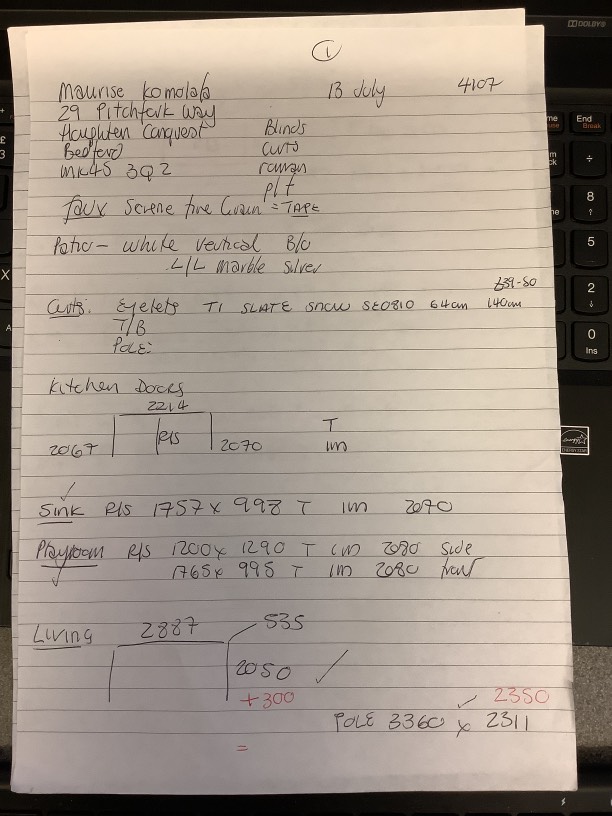 1
Maurise Komolafa 13 July 4107
29 Pitchfork Way
Haughten Conquest Blinds
Bedford Curts
MK45 3Q2 roman
plt
faux Screne fine Grain = TAPE
Patio - white vertical B/O
L/L marble silver
£39-50
Curts: Eyelets T1 SLATE SNOW SE0810 64cm 140cm
T/B
POLE:
Kitchen Doors
2214
2067 R/S 2070 T
1m
Sink R/S 1757 x 998 T 1m 2070
Playroom R/S 1200 x 1290 T 1m 2080 side
1765 x 995 T 1m 2080 front
Living 2887 535
2050
+300 2350
POLE 3360 x 2311
=
DOLBY
End
Break
÷
8
5
2
0
Ins
£
3
X
A
ENERGY STAR